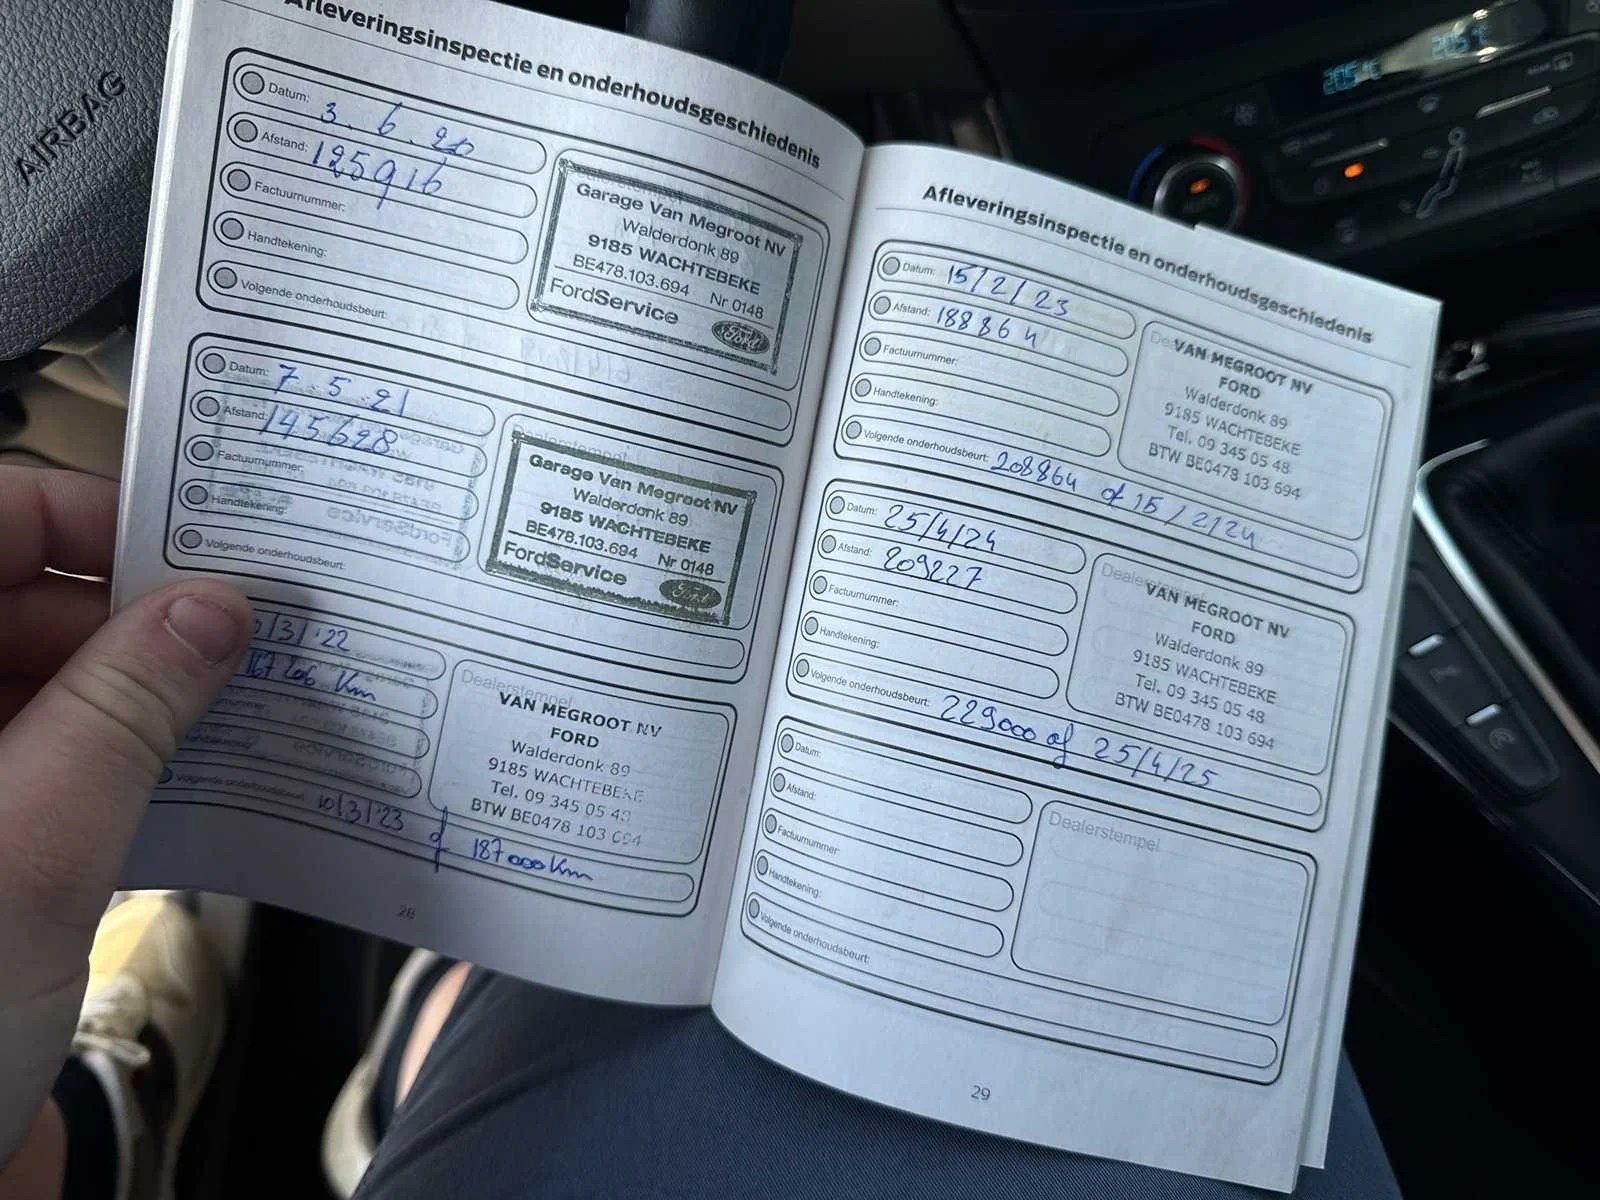 AIRBAG
Afleveringsinspectie en onderhoudsgeschiedenis
Datum: 3.6.20
Afstand: 125916
Factuurnummer:
Handtekening:
Volgende onderhoudsbeurt:
Garage Van Megroot NV
Walderdonk 89
9185 WACHTEBEKE
BE478.103.694 Nr 0148
FordService
Ford
Datum: 7.5.21
Afstand: 145628
Factuurnummer:
Handtekening:
Volgende onderhoudsbeurt:
Dealerstempel
Garage Van Megroot NV
Walderdonk 89
9185 WACHTEBEKE
BE478.103.694 Nr 0148
FordService
Ford
/3/'22
167206 Km
Volgende onderhoudsbeurt: 10/3/'23 of 187000Km
Dealerstempel
VAN MEGROOT NV
FORD
Walderdonk 89
9185 WACHTEBEKE
Tel. 09 345 05 48
BTW BE0478 103 694
28
Afleveringsinspectie en onderhoudsgeschiedenis
Datum: 15/2/23
Afstand: 188864
Factuurnummer:
Handtekening:
Volgende onderhoudsbeurt: 208864 of 15/2/24
VAN MEGROOT NV
FORD
Walderdonk 89
9185 WACHTEBEKE
Tel. 09 345 05 48
BTW BE0478 103 694
Datum: 25/4/24
Afstand: 209227
Factuurnummer:
Handtekening:
Volgende onderhoudsbeurt: 229000 of 25/4/25
Dealerstempel
VAN MEGROOT NV
FORD
Walderdonk 89
9185 WACHTEBEKE
Tel. 09 345 05 48
BTW BE0478 103 694
Datum:
Afstand:
Factuurnummer:
Handtekening:
Volgende onderhoudsbeurt:
Dealerstempel
29